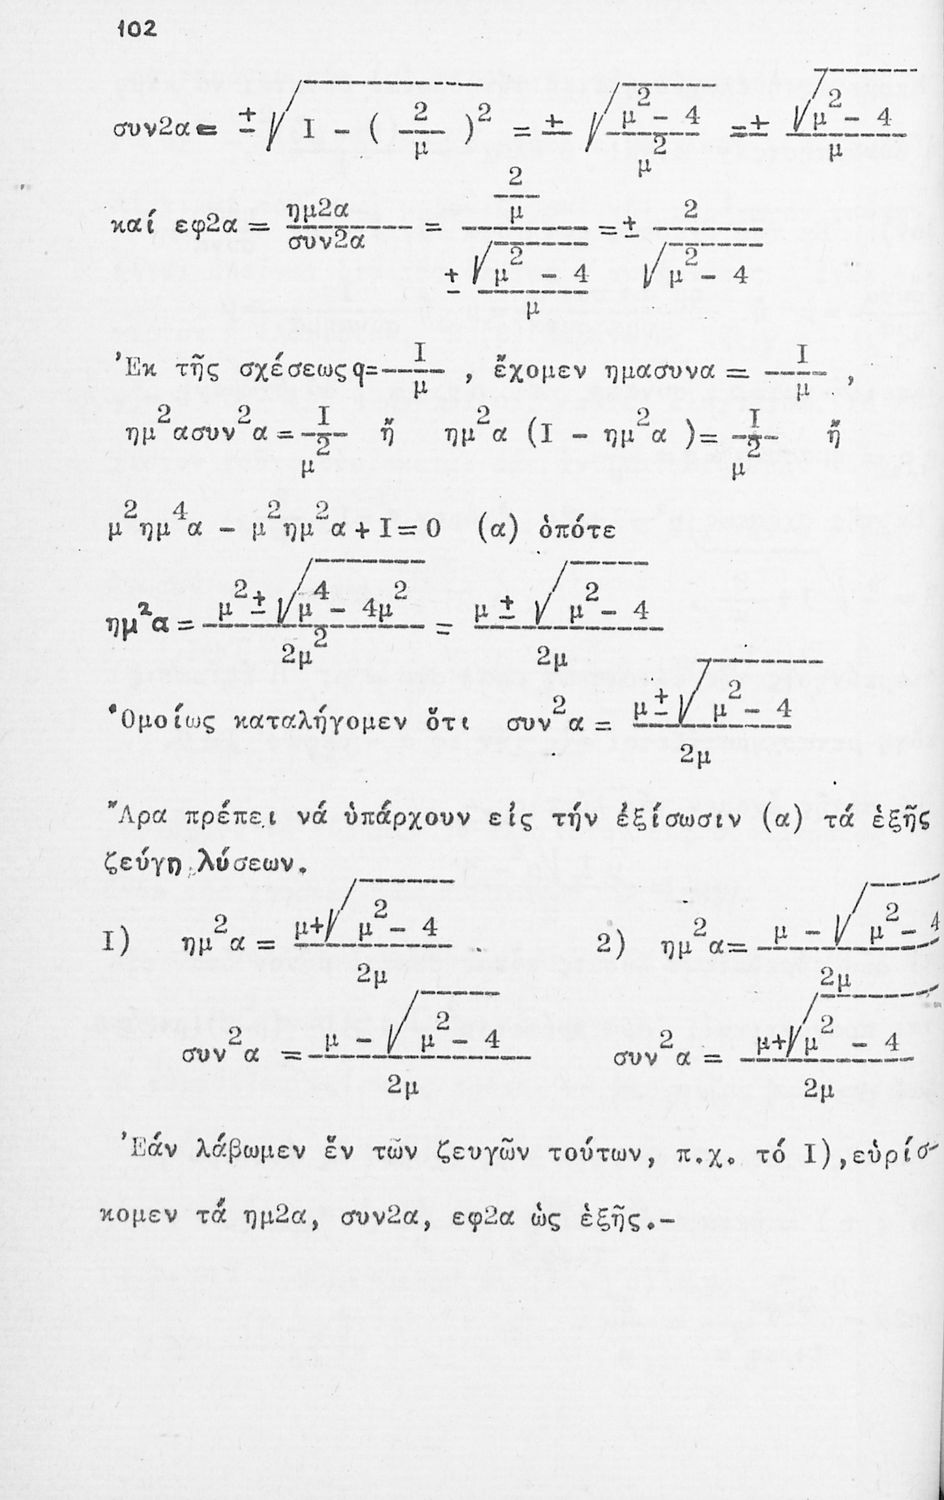 102
συν2α = ± √(I - (2/μ)²) = ± √((μ² - 4)/μ²) = ± √(μ² - 4)/μ
καί εφ2α = ημ2α/συν2α = (2/μ)/(± √(μ² - 4)/μ) = ± 2/√(μ² - 4)
Ἐκ τῆς σχέσεως q = I/μ , ἔχομεν ημασυνα = I/μ ,
ημ²ασυν²α = I/μ² ἤ ημ²α (I - ημ²α ) = I/μ² ἤ
μ²ημ⁴α - μ²ημ²α + I = 0 (α) ὁπότε
ημ²α = (μ² ± √(μ⁴ - 4μ²))/2μ² = (μ ± √(μ² - 4))/2μ
Ὁμοίως καταλήγομεν ὅτι συν²α = (μ ± √(μ² - 4))/2μ
Ἄρα πρέπει νά ὑπάρχουν εἰς τήν ἐξίσωσιν (α) τά ἑξῆς
ζεύγη λύσεων.
I) ημ²α = (μ + √(μ² - 4))/2μ 2) ημ²α = (μ - √(μ² - 4))/2μ
συν²α = (μ - √(μ² - 4))/2μ συν²α = (μ + √(μ² - 4))/2μ
Ἐάν λάβωμεν ἕν τῶν ζευγῶν τούτων, π.χ. τό I), εὑρίσ-
κομεν τά ημ2α, συν2α, εφ2α ὡς ἑξῆς.-